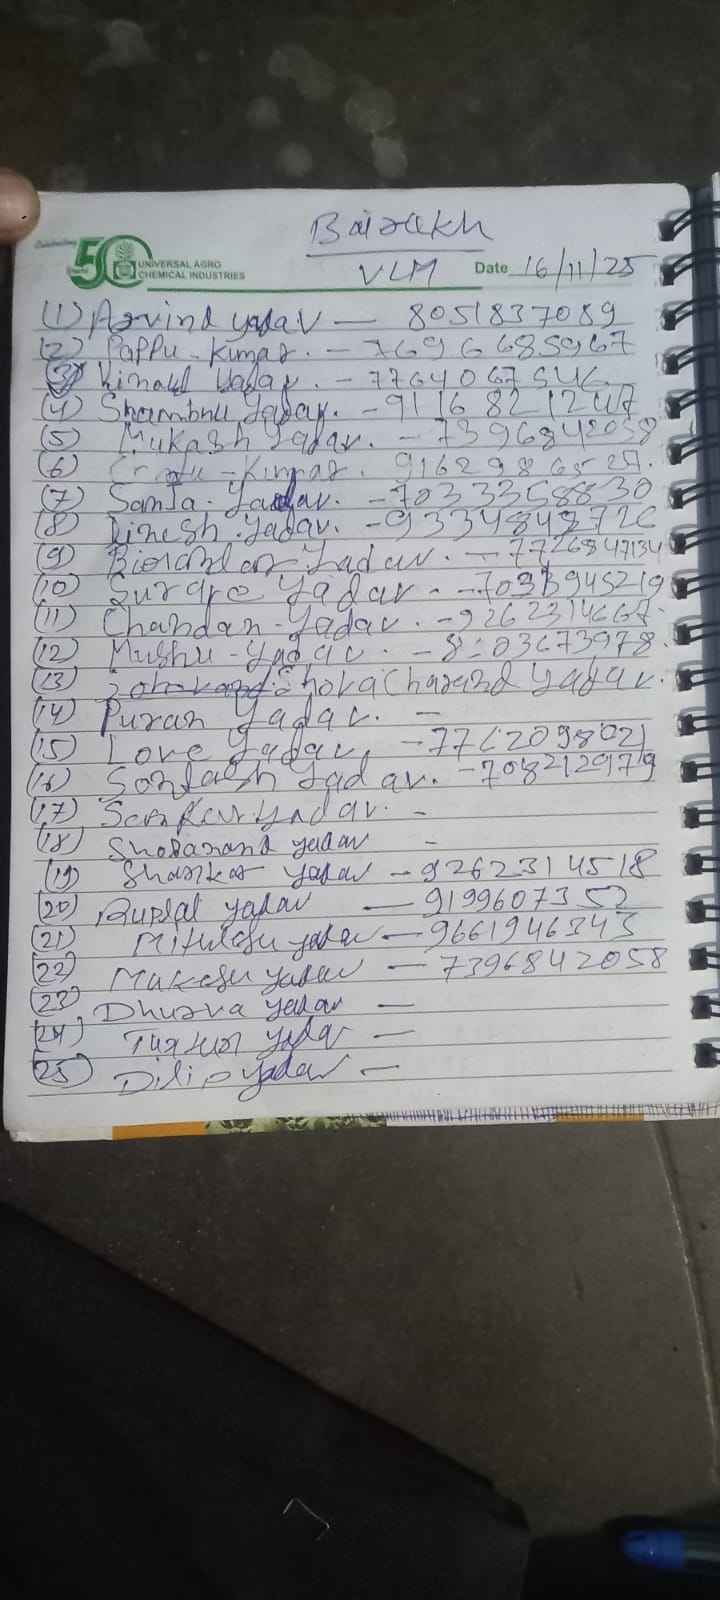 Bairakh
50 UNIVERSAL AGRO
CHEMICAL INDUSTRIES
VLM Date 16/11/25
(1) Arvind yadav — 8051837089
(2) Pappu - Kumar. - 7696685967
(3) Yadav. - 7764067546
(4) Shambhu Yadav. - 9116821247
(5) Mukash Yadav. - 7396842058
(6) - Kumar. 9162986527.
(7) Sanja - Yadav. - 7033358830
(8) Dinesh . Yadav. - 9334848726
(9) Yadav. — 7726847134
(10) Yadav - - 7033945219
(11) Chandan - Yadav. - 9262314667.
(12) Mushu - Yadav. - 8 03673978.
(13) Charand Yadav.
(14) Puran Yadav. —
(15) Love Yadav. - 7762098021
(16) Sontash Yadav. - 708212979
(17) Yadav. -
(18) Shobanand yadav -
(19) Shankar yadav - 9262314518
(20) Ruplal yadav — 9199607352
(21) Mithlesh yadav — 9661946343
(22) Makesh yadav — 7396842058
(23) Dhurva yadav —
(24) yadav —
(25) Dilip yadav —